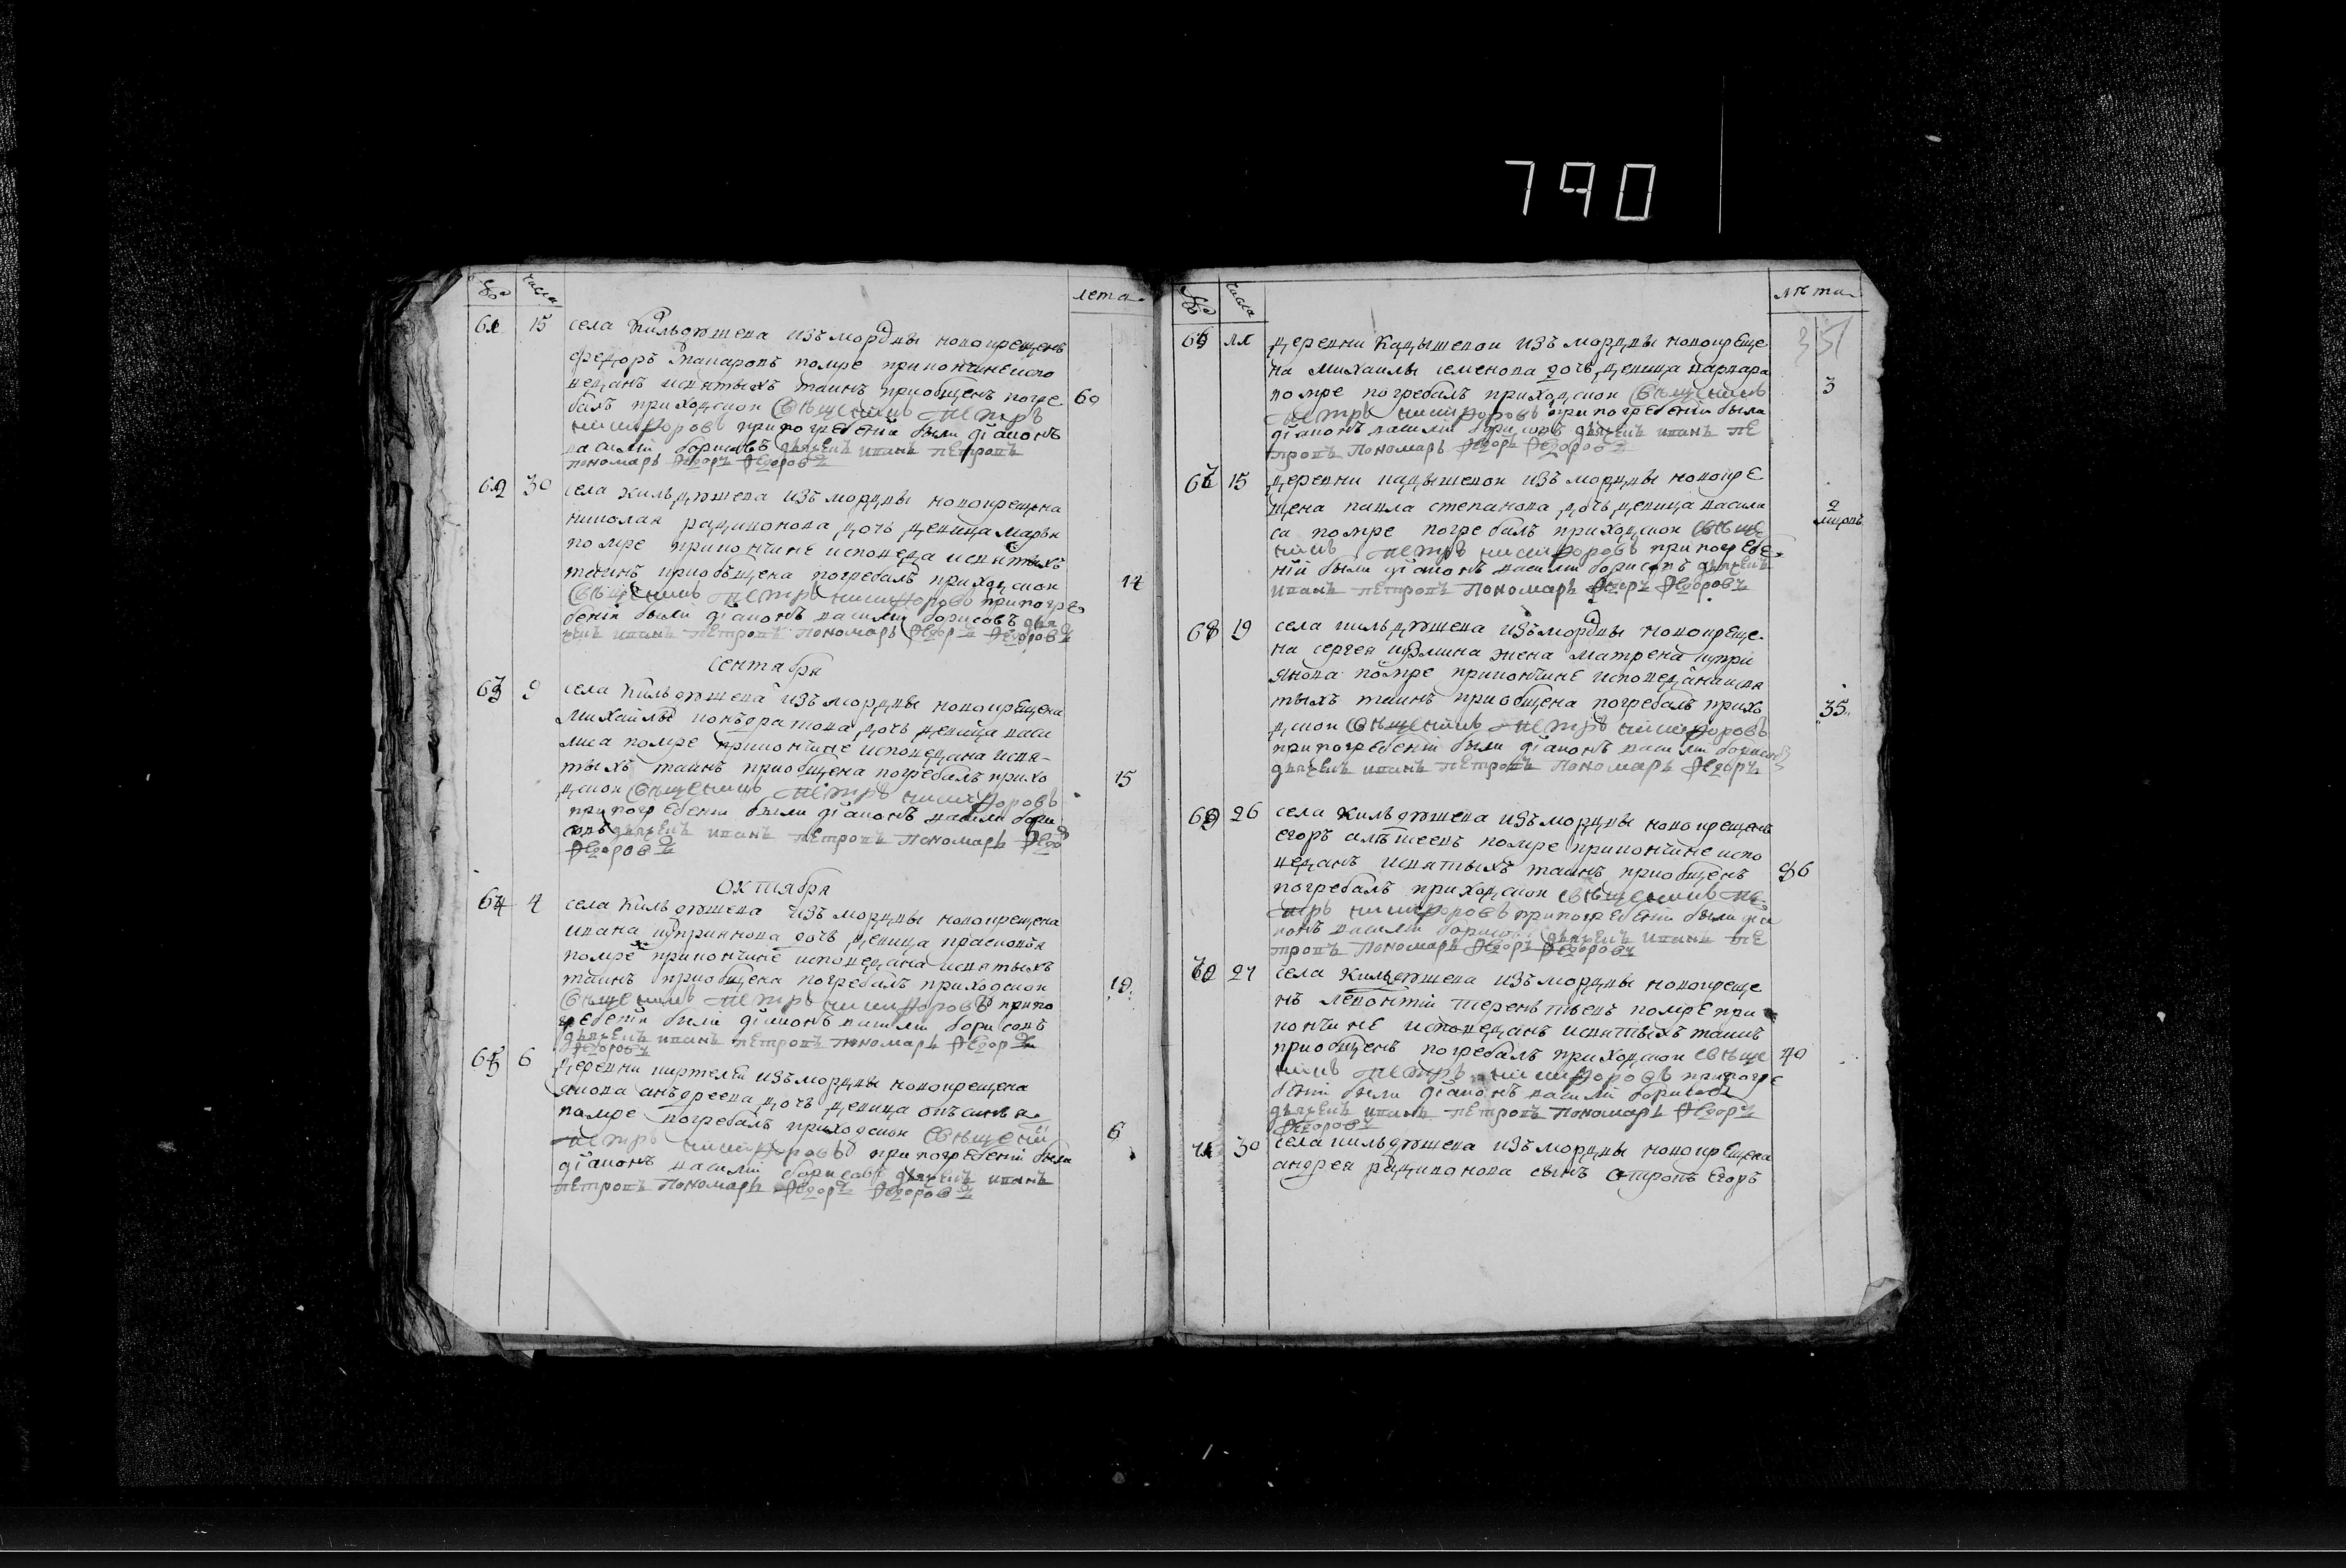 790
№ числа лета
61 15 села Кильдюшева изъ мордвы новокрещенъ
федоръ Макаровъ помреприкончине испо
веданъ исвятыхъ таинъ приобщенъ погре 60
балъ приходскои Священникъ Петръ
никифоровъ припогребении были диаконъ
василии борисовъ дьячекъ иванъ петровъ
пономарь Федоръ Федоровъ
62 30 села кильдюшева изъ мордвы новокрещена
николая радионова дочь девица марья
помре прикончине исповедана исвятыхъ
таинъ приобщена погребалъ приходскои 14
Священникъ Петръ никифоровъ припогре
бении были диаконъ василии борисовъ дья
чекъ иванъ петровъ пономарь Федоръ Федоровъ
сентябрь
63 9 села Кильдюшева изъ мордвы новокрещена
михайлы кондратова дочь девица васи
лиса помре прикончине исповедана исвя-
тыхъ таинъ приобщена погребалъ прихо 15
дскои Священникъ Петръ никифоровъ
припогребении были диаконъ василии бори
совъ дьячекъ иванъ петровъ пономарь Федо
Федоровъ
октябрь
64 4 села Кильдюшева изъ мордвы новокрещена
ивана куприянова дочь девица прасковья
помре прикончине исповедана исвятыхъ
таинъ приобщена погребалъ приходскои 19
Священникъ Петръ никифоровъ припо
гребении были диаконъ василии борисовъ
дьячекъ иванъ петровъ пономарь Федоръ
Федоровъ
65 6 деревни киртели изъ мордвы новокрещена
якова андреева дочь девица
помре погребалъ приходскои Священни
Петръ никифоровъ припогребении были 6
диаконъ василии борисовъ дьячекъ иванъ
петровъ пономарь Федоръ Федоровъ
№ числа лѣта
351
66 деревни Кадышевои изъ мордвы новокреще
на михаилы семенова дочь девица варвара
помре погребалъ приходскои Священникъ 3
Петръ никифоровъ припогребении были
диаконъ василии борисовъ дьячекъ иванъ пе
тровъ пономарь Федоръ Федоровъ
67 15 деревни кадышевои изъ мордвы новокре
щена павла степанова дочь девица васили 2
са помре погребалъ приходскои Священ
никъ Петръ никифоровъ припогребе
нии были диаконъ василии борисовъ дьячекъ
иванъ петровъ пономарь Федоръ Федоровъ
68 19 села кильдюшева изъ мордвы новокреще
на сергея кузмина жена матрена купри
янова помре прикончине исповедана исвя
тыхъ таинъ приобщена погребалъ прихо 35
дскои Священникъ Петръ никифоровъ
припогребении были диаконъ василии борисовъ
дьячекъ иванъ петровъ пономарь Федоръ
69 26 села кильдюшева изъ мордвы новокрещенъ
егоръ алѣксеевъ помре прикончине испо
веданъ исвятыхъ таинъ приобщенъ 36
погребалъ приходскои священникъ Пе
тръ никифоровъ припогребении были диа
конъ василии борисовъ дьячекъ иванъ пе
тровъ пономарь Федоръ Федоровъ
70 27 села кильдюшева изъ мордвы новокреще
нъ леконтии терентьевъ помре при
кончине исповеданъ исвятыхъ таинъ
приобщенъ погребалъ приходскои свяще 40
никъ Петръ никифоровъ припогре
бении были диаконъ василии борисовъ
дьячекъ иванъ петровъ пономарь Федоръ
Федоровъ
71 30 села кильдюшева изъ мордвы новокрещена
андрея радионова сынъ отрокъ Егоръ